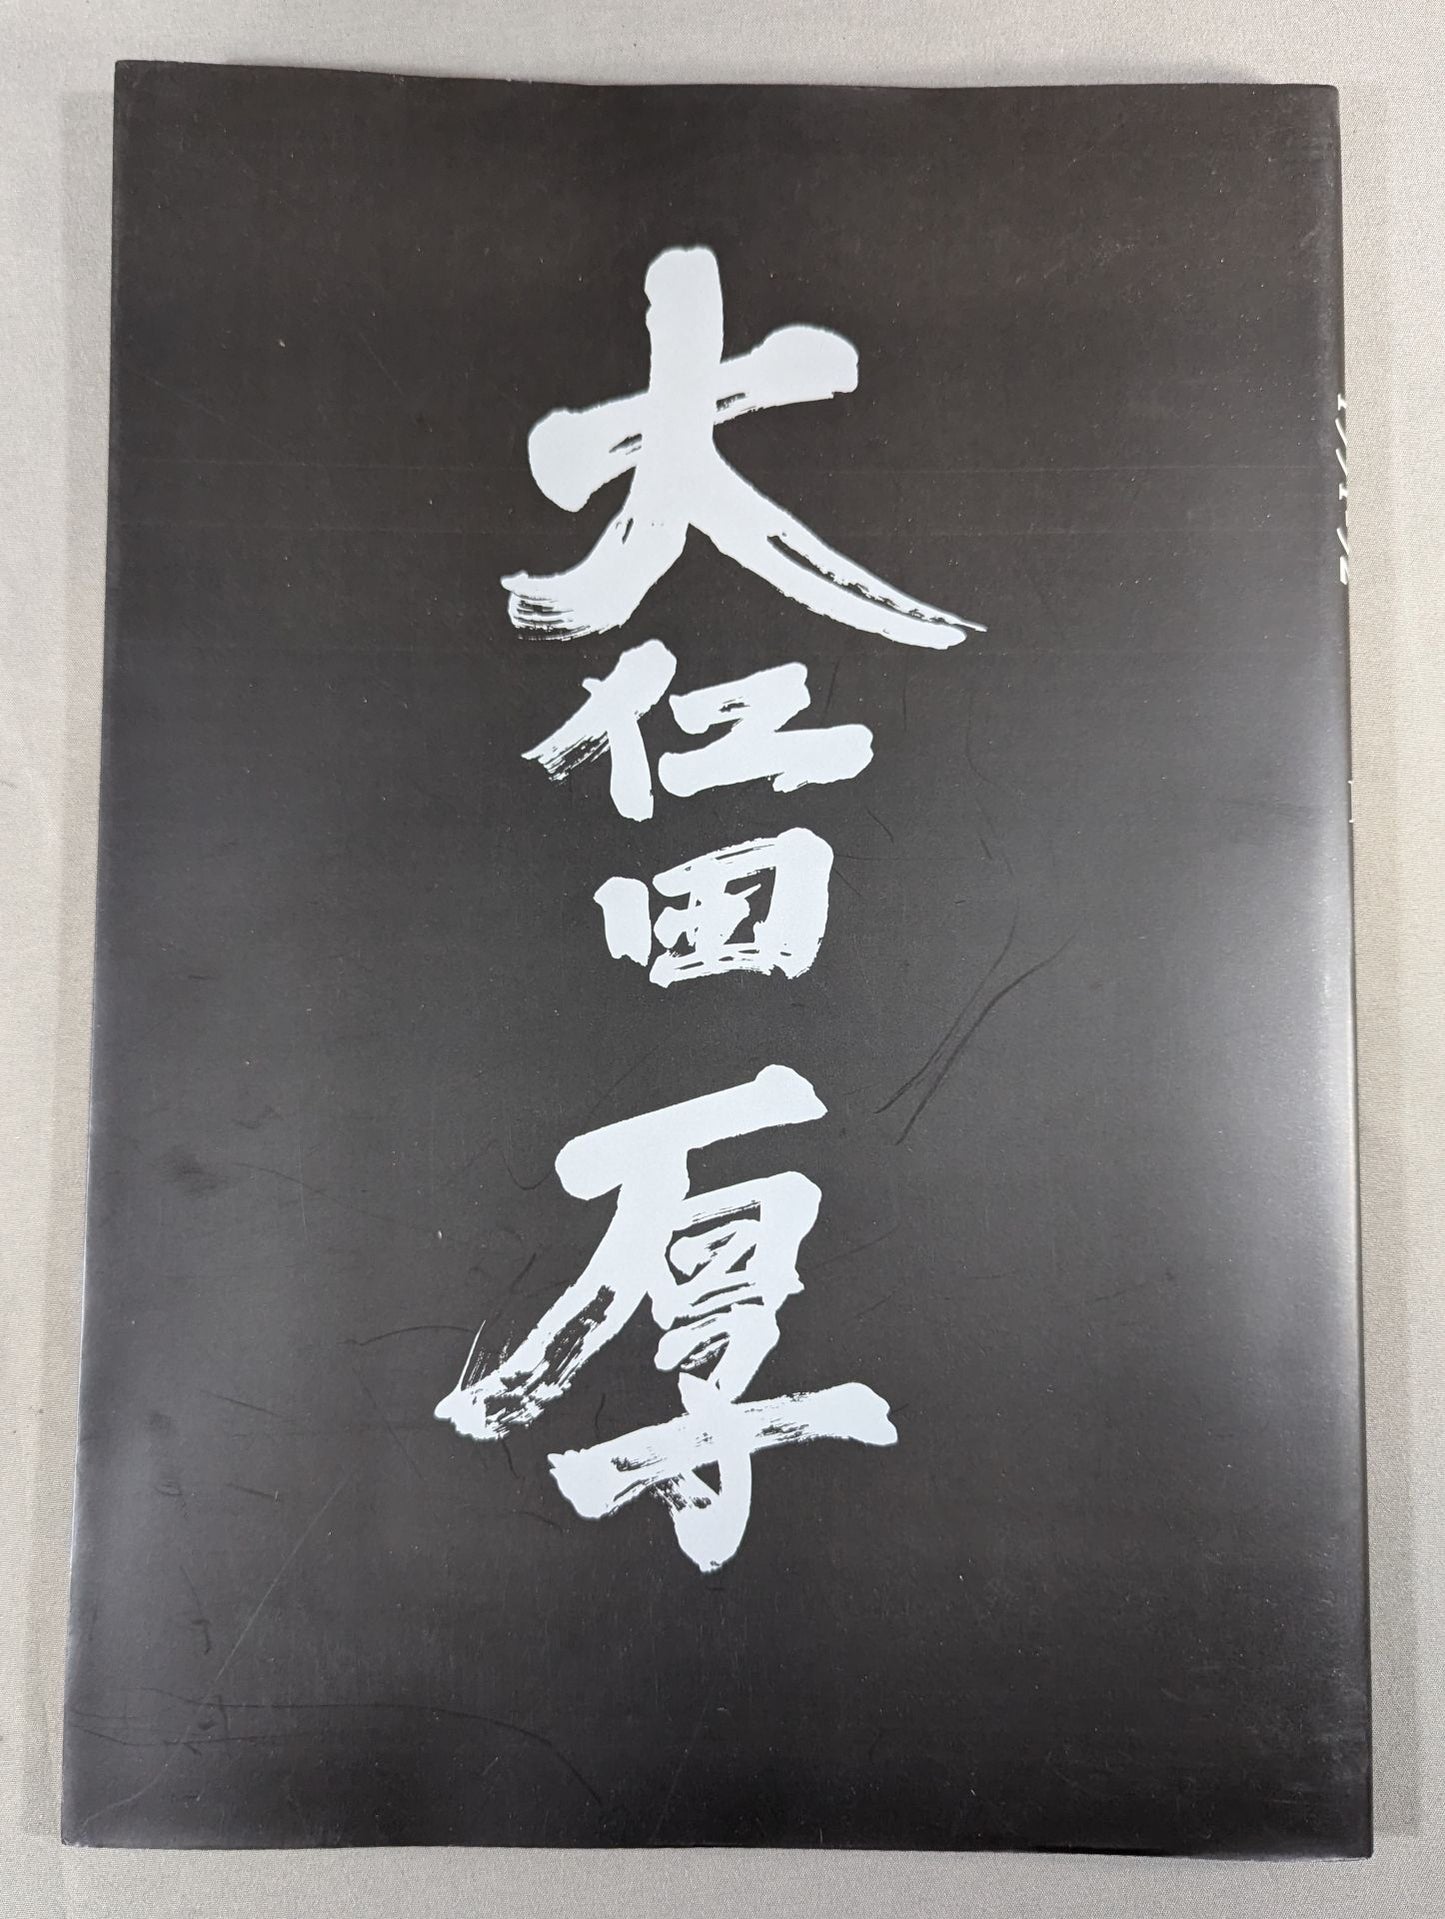 大仁田
厚